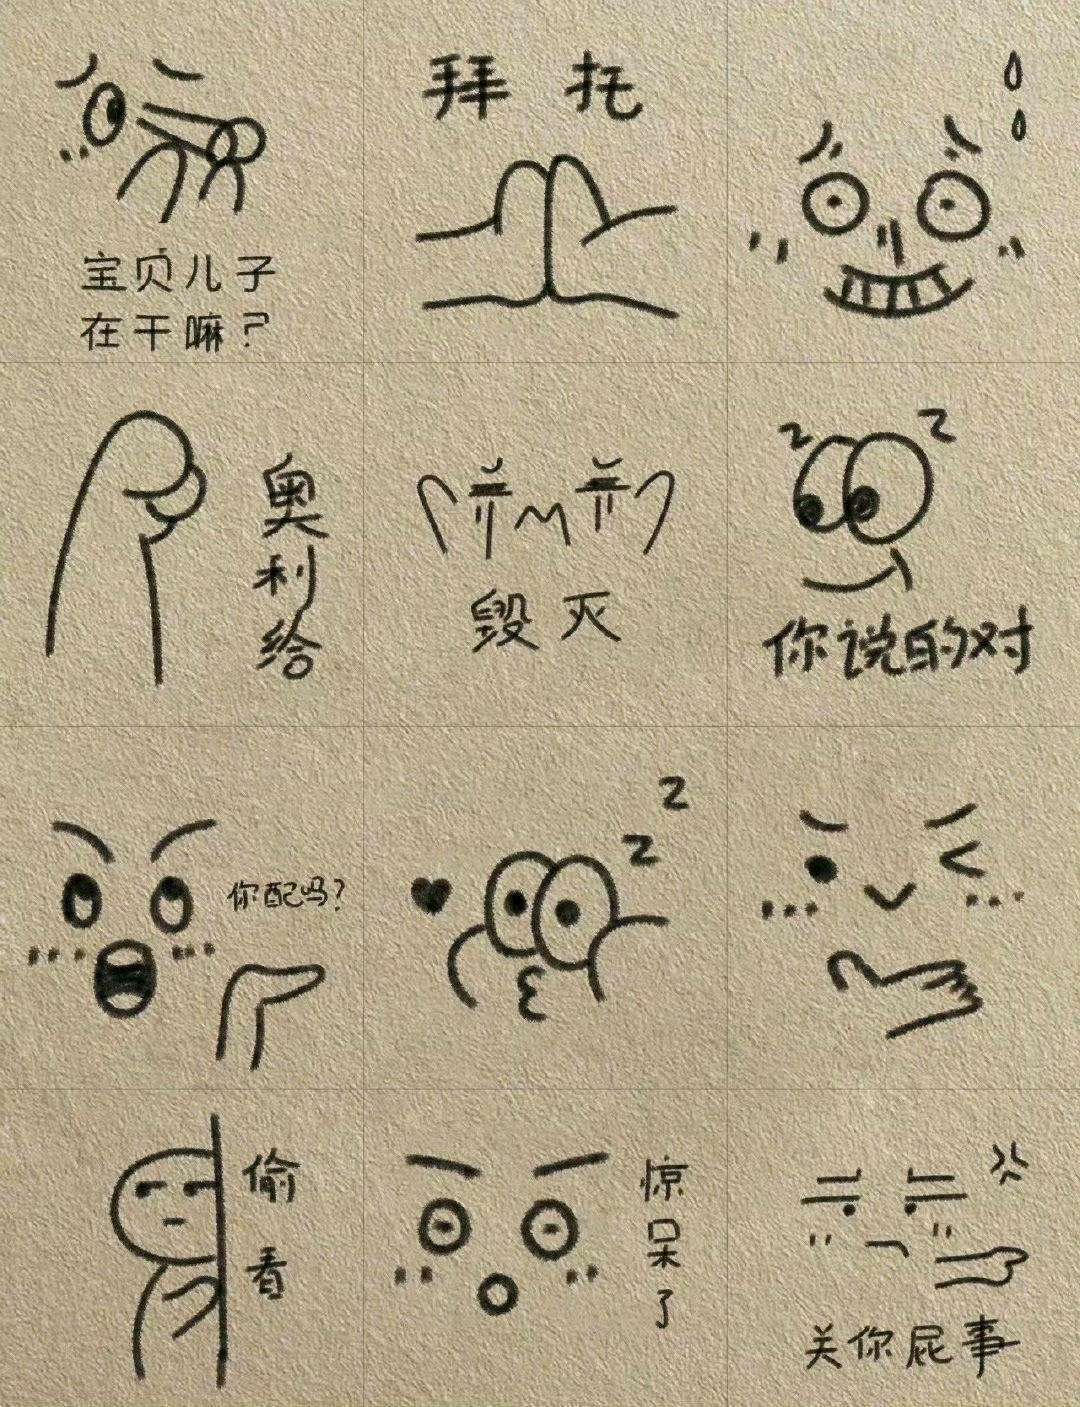 宝贝儿子
在干嘛？
拜托
奥利给
毁灭
z
z
你说的对
你配吗？
z
z
偷看
惊呆了
关你屁事